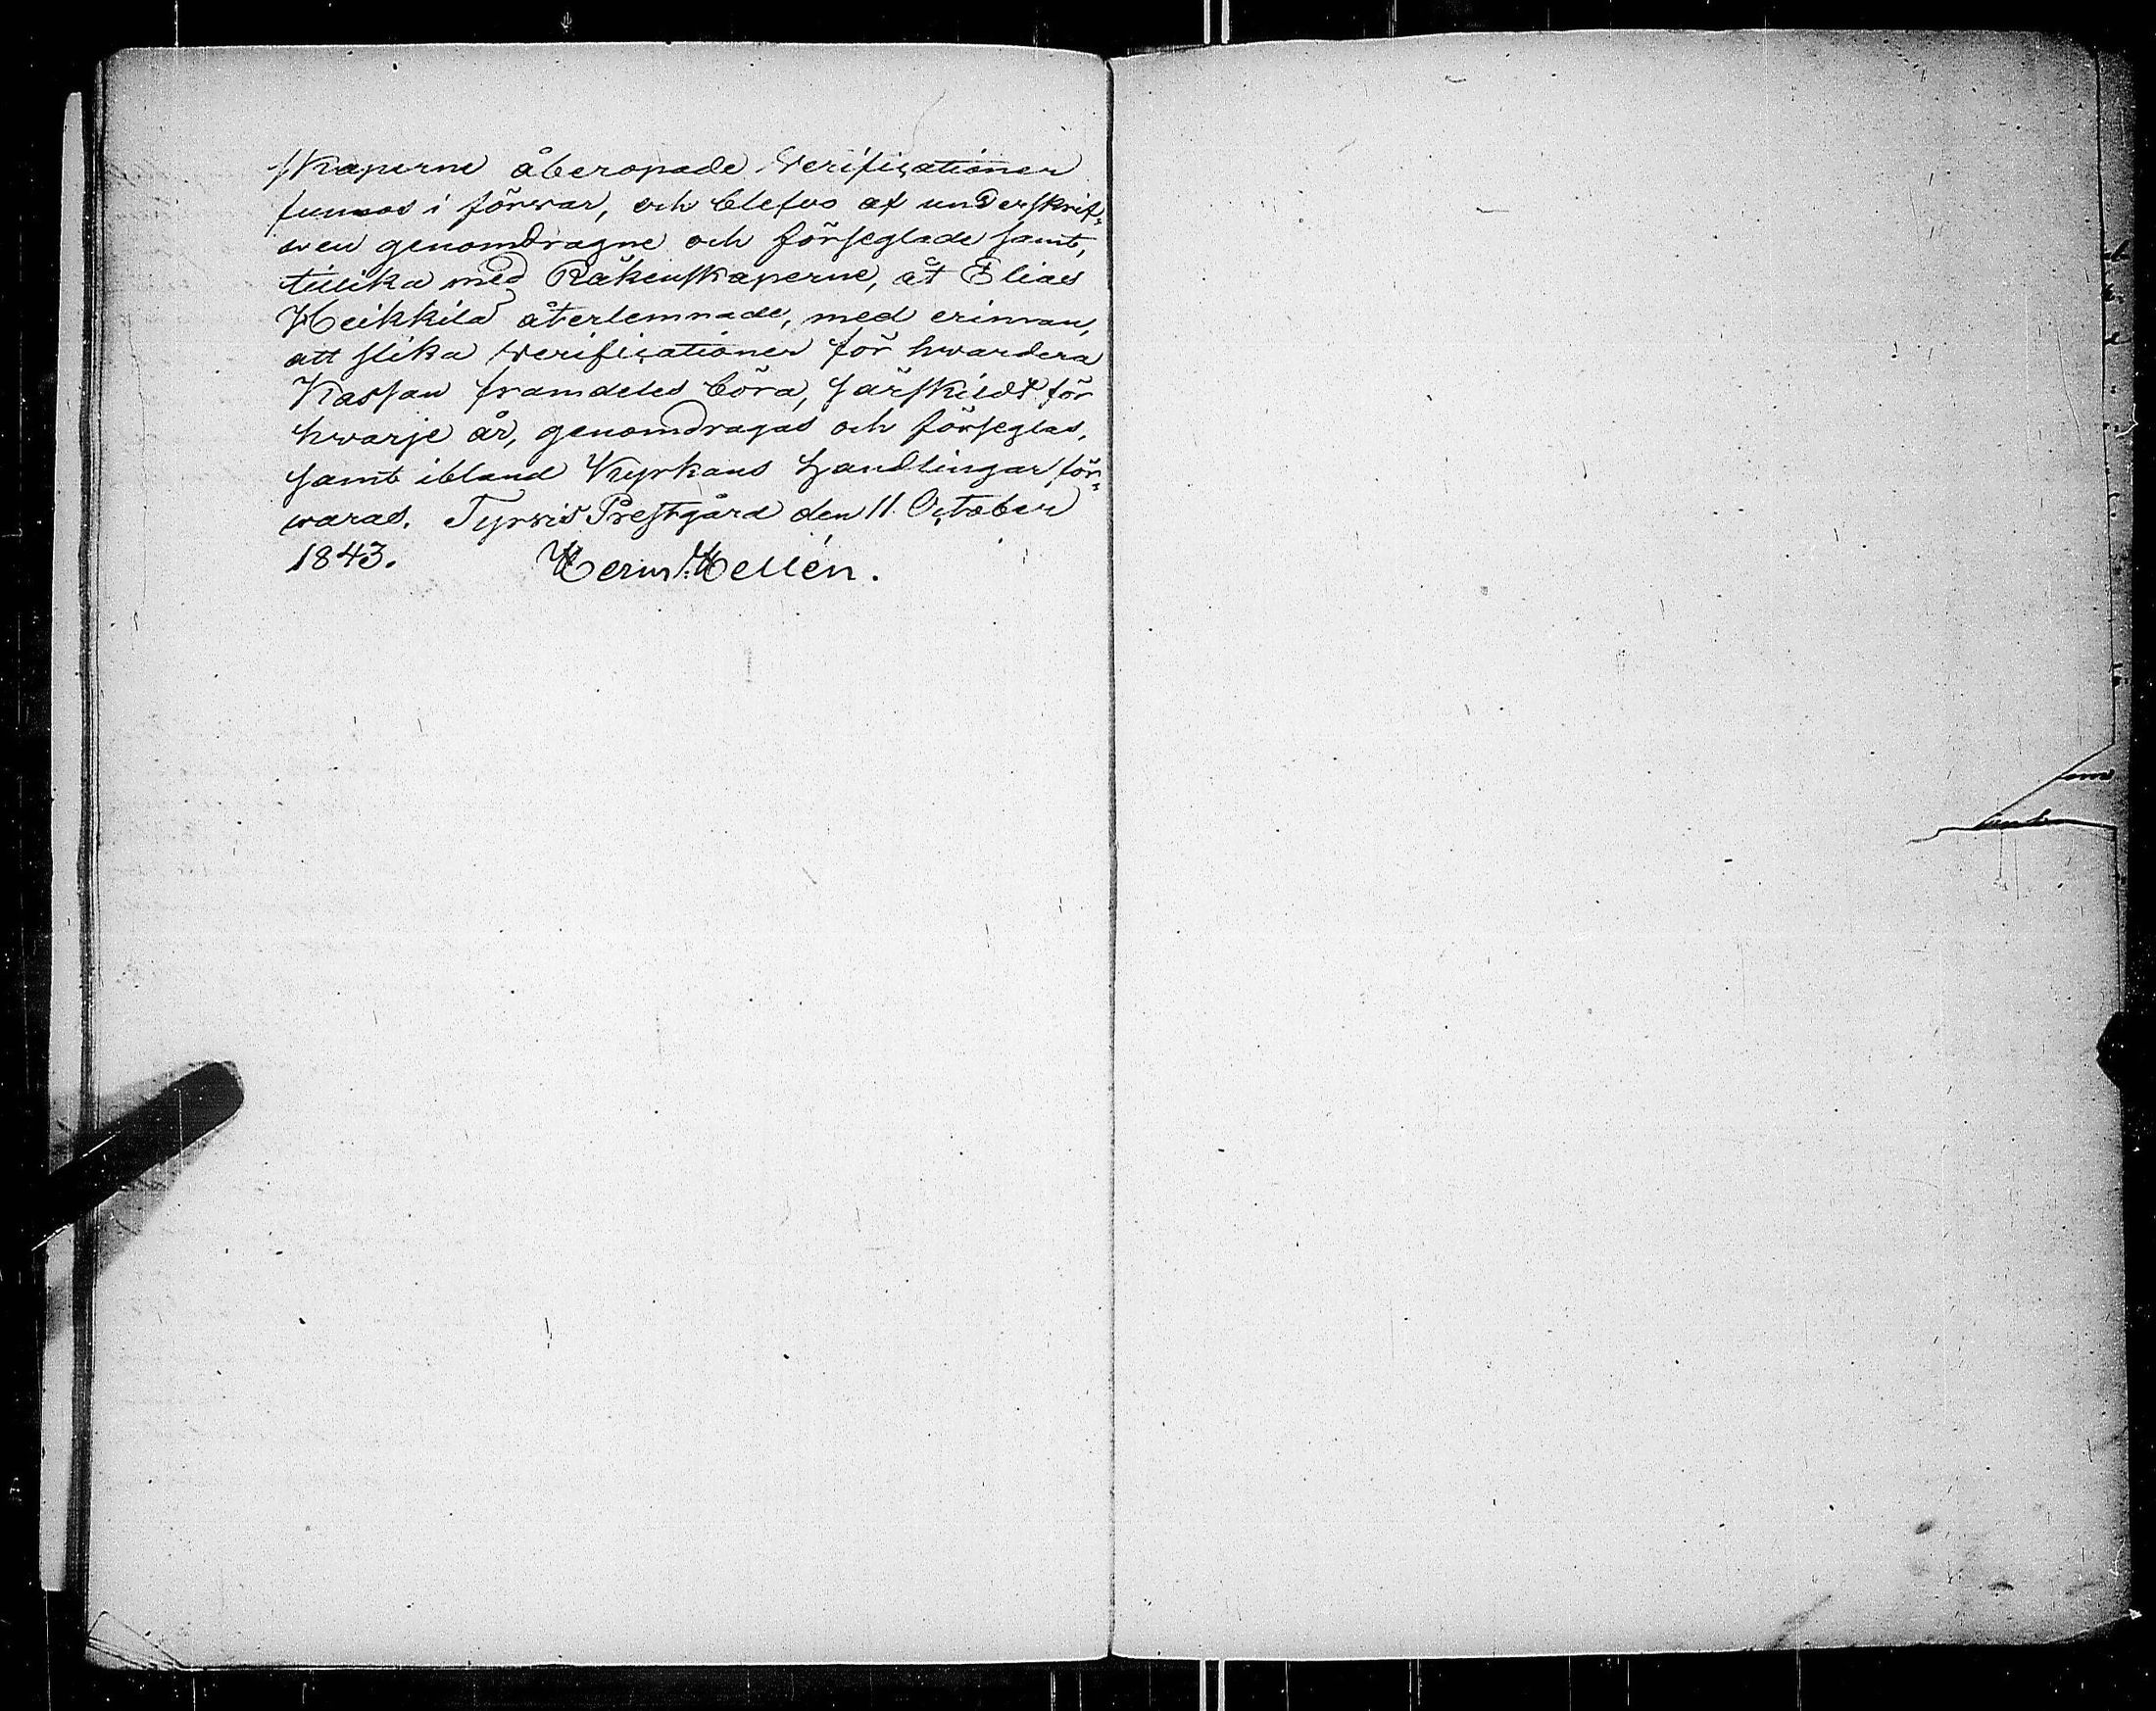 skaperne åberopade Verificationer
funnos i förwar, och blefvo af underskrif-
wen genomdragne och förseglade samt,
tillika med Räkenskaperne, åt Elias
Heikkilä återlemnade, med erinran,
att slika Verificationer för hwardera
Kassan framdeles böra, särskildt för
hwarje år, genomdragas och förseglas,
samt ibland Kyrkans Handlingar för-
waras. Tyrwis Prestgård den 11 October
1843. Herm. Hellén.